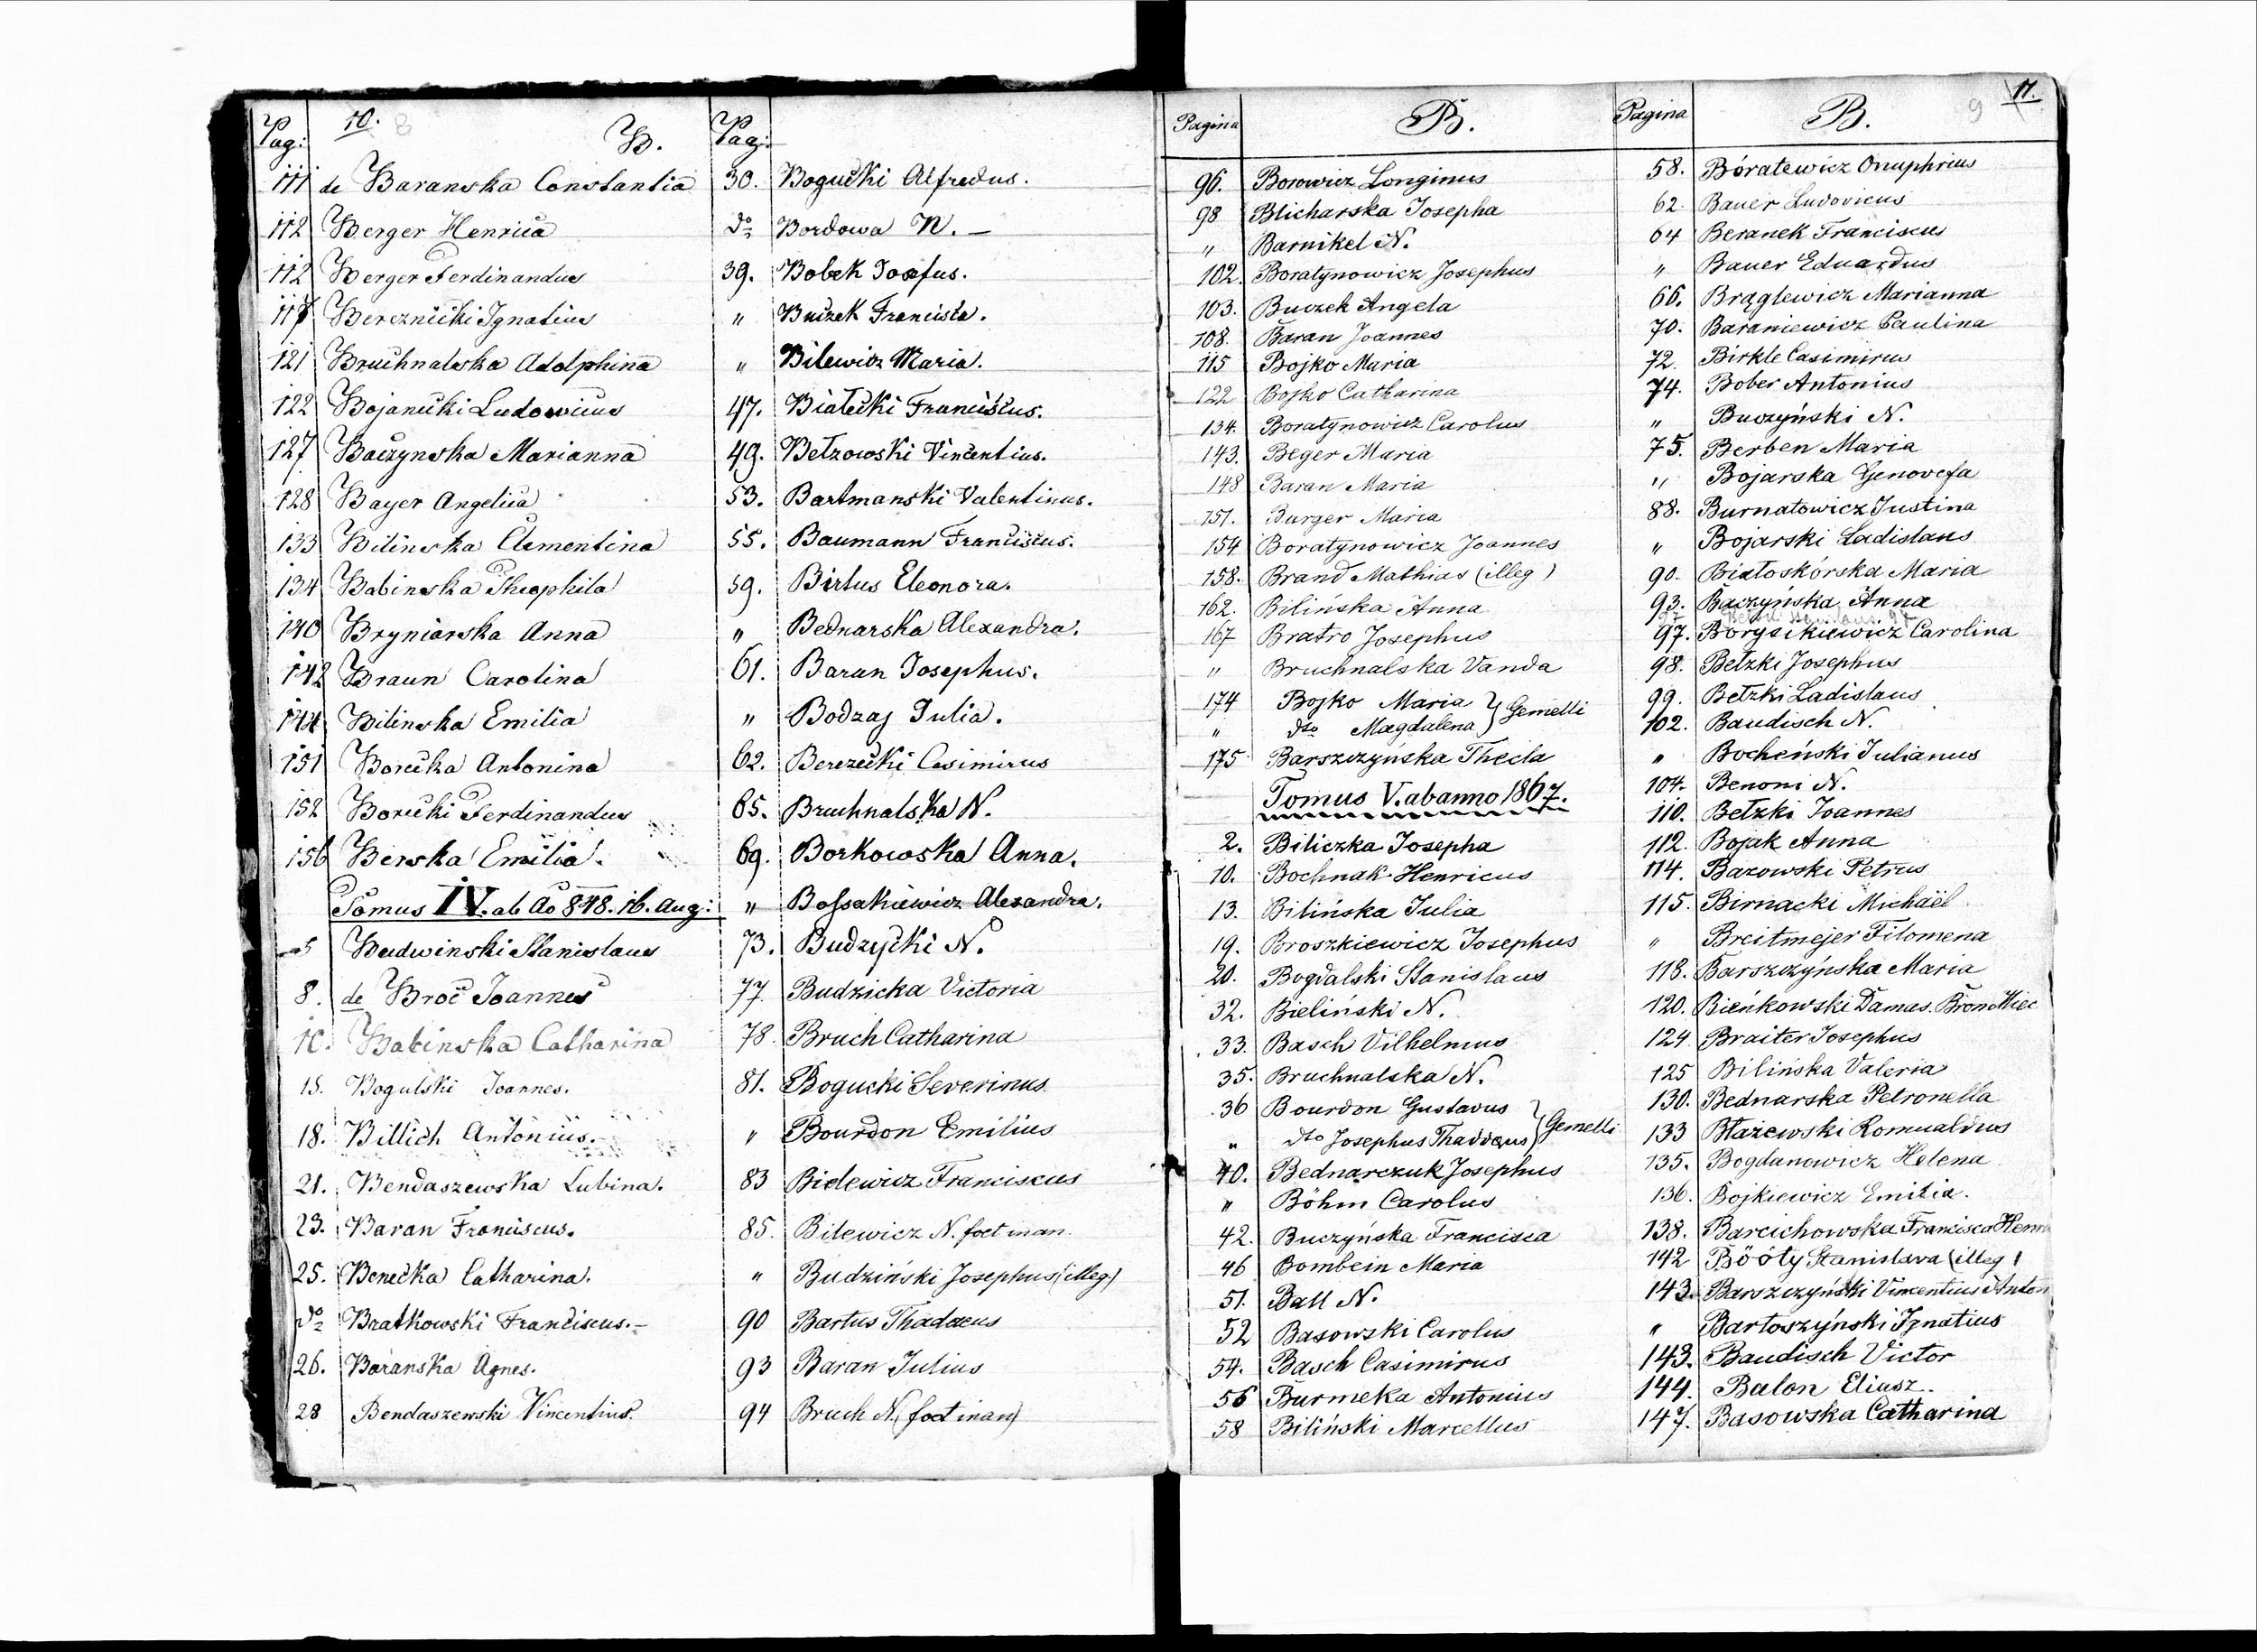 10.
Pag: B. Pag:
111 de Baranska Constantia
112 Berger Henrica
112 Berger Ferdinandus
117 Bereznicki Ignatius
121 Bruchnalska Adolphina
122 Bojanicki Ludovicus
127 Baczynska Marianna
128 Bayer Angelica
133 Bilinska Clementina
134 Babinska Theophila
140 Bryniarska Anna
142 Braun Carolina
144 Bilinska Emilia
151 Borecka Antonina
152 Borecki Ferdinandus
156 Berska Emilia.
Tomus IV. ab Ao 848. 16. Aug:
5 Budwinski Stanislaus
8. de Broc Joannes
10. Babinska Catharina
15. Bogulski Joannes.
18. Billich Antonius.
21. Bendaszewska Lubina.
23. Baran Franciscus.
25. Benecka Catharina.
do Bratkowski Franciscus.-
26. Baranska Agnes.
28 Bendaszewski Vincentius.
30. Bogucki Alfredus.
do Bordowa N. -
39. Bobek Josefus.
" Buczek Francisca.
" Bilewicz Maria.
47. Białecki Franciscus.
49. Bełzowski Vincentius.
53. Bartmanski Valentinus.
55. Baumann Franciscus.
59. Birtus Eleonora.
" Bednarska Alexandra.
61. Baran Josephus.
" Bodzaj Julia.
62. Berezecki Casimirus
65. Bruchnalska N.
69. Borkowska Anna.
" Bossakiewicz Alexandra.
73. Budzycki N.
77. Budzicka Victoria
78. Bruch Catharina
81. Bogucki Severinus
" Bourdon Emilius
83 Bielewicz Franciscus
85. Bilewicz N. foet man.
" Budziński Josephus (illeg)
90 Bartus Thadaeus
93 Baran Julius
94 Bruch N. (foet inan)
11.
9
Pagina B. Pagina B.
96. Borowicz Longinus
98 Blicharska Josepha
" Barnikel N.
102. Boratynowicz Josephus
103. Buczek Angela
108. Baran Joannes
115 Bojko Maria
122 Bojko Catharina
134. Boratynowicz Carolus
143. Beger Maria
148 Baran Maria
151. Burger Maria
154 Boratynowicz Joannes
158. Brand Mathias (illeg)
162. Bilińska Anna
167 Bratro Josephus
" Bruchnalska Vanda
174 Bojko Maria } Gemelli
" dto Magdalena
175 Barszczyńska Thecla
Tomus V. ab anno 1867.
2. Biliczka Josepha
10. Bochnak Henricus
13. Bilińska Julia
19. Broszkiewicz Josephus
20. Bogdalski Stanislaus
32. Bieliński N.
33. Basch Vilhelmus
35. Bruchnalska N.
36 Bourdon Gustavus } Gemelli
" dto Josephus Thaddeus
40. Bednarczuk Josephus
" Böhm Carolus
42. Buczyńska Francisca
46 Bombein Maria
51. Ball N.
52 Basowski Carolus
54. Basch Casimirus
56 Burmeka Antonius
58 Biliński Marcellus
58. Bóratewicz Onuphrius
62. Bauer Ludovicus
64 Beranek Franciscus
" Bauer Eduardus
66. Brąglewicz Marianna
70. Baraniewicz Paulina
72. Birkle Casimirus
74. Bober Antonius
" Buczyński N.
75. Berben Maria
" Bojarska Genovefa
88. Burnatowicz Justina
" Bojarski Ladislaus
90. Białoskórska Maria
93. Baczyńska Anna
97. Borysikiewicz Carolina
98. Betzki Josephus
99. Betzki Ladislaus
102. Baudisch N.
" Bocheński Julianus
104. Benoni N.
110. Betzki Joannes
112. Bojak Anna
114. Bazowski Petrus
115. Birnacki Michaël
" Breitmejer Filomena
118. Barszczyńska Maria
120. Bieńkowski Damas. Bron Miec
124. Braiter Josephus
125 Bilińska Valeria
130. Bednarska Petronella
133 Błażewski Romualdus
135. Bogdanowicz Helena
136. Bojkiewicz Emilia.
138. Barcichowska Francisca Henr
142 Böóty Stanislava (illeg)
143. Barszczyński Vincentius Anton
" Bartoszyński Ignatius
143. Baudisch Victor
144. Balon Eliasz.
147. Basowska Catharina